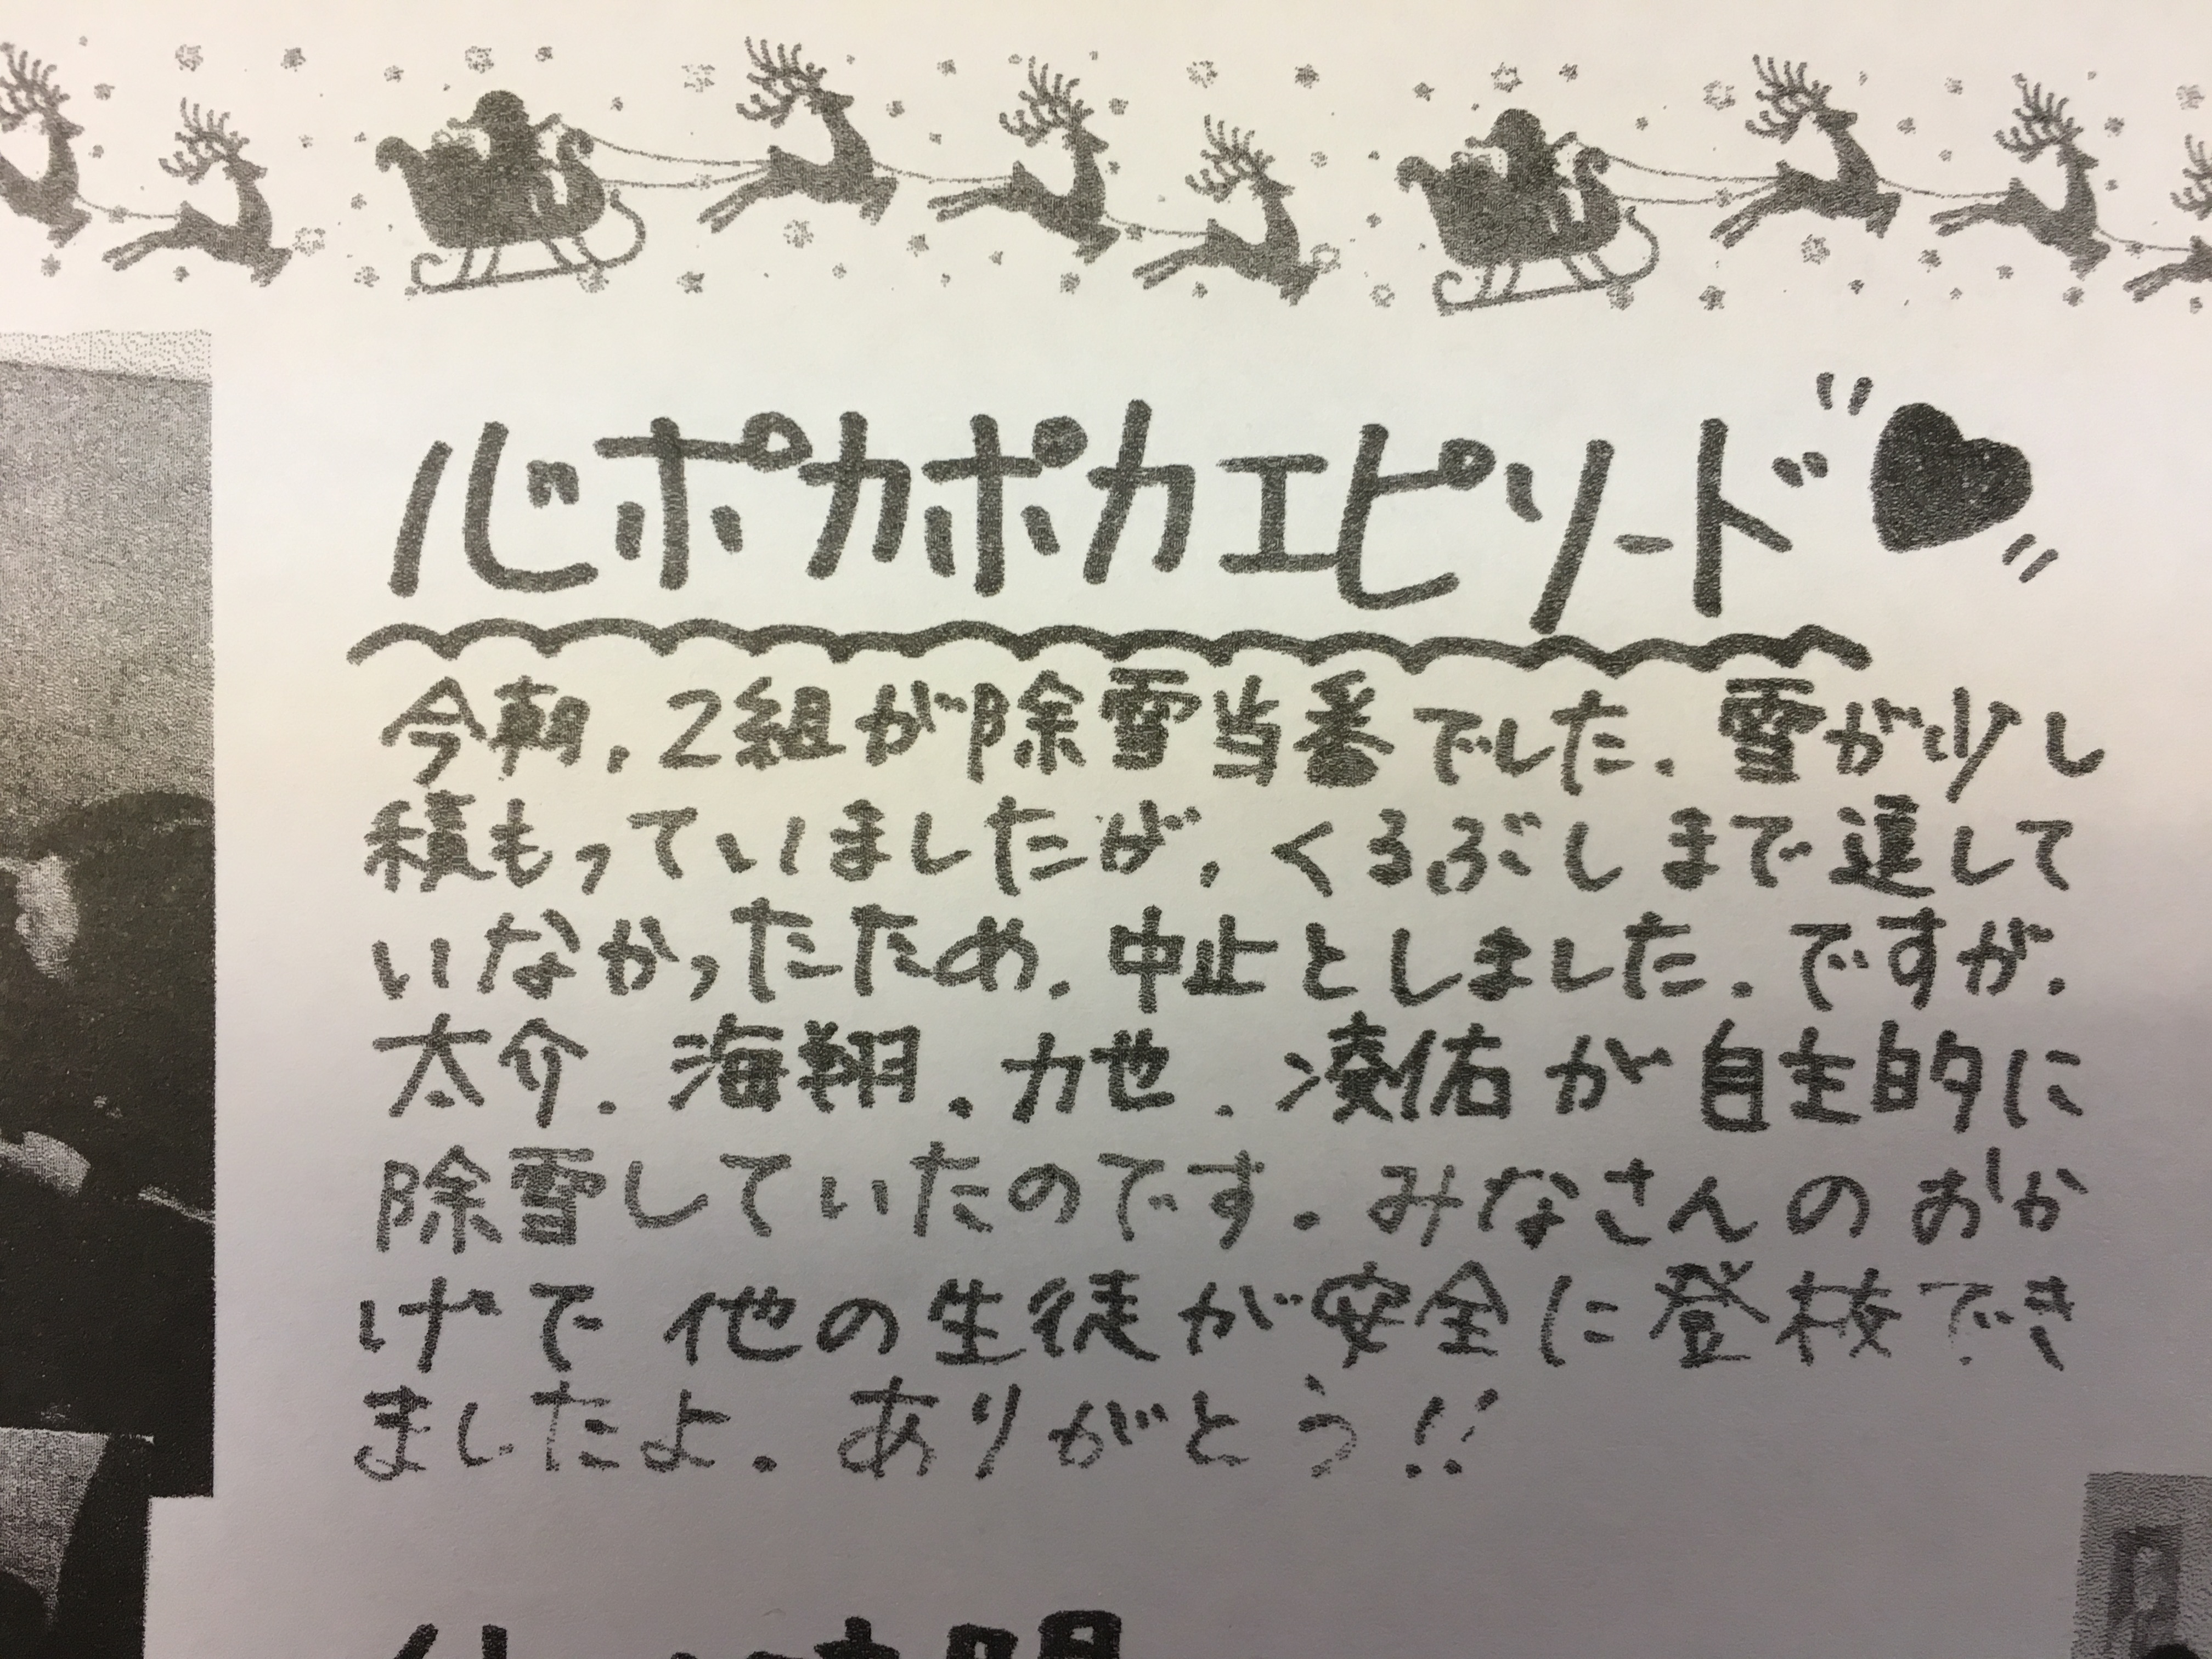 心ポカポカエピソード
今朝、2組が除雪当番でした。雪が少し
積もっていましたが、くるぶしまで達して
いなかったため、中止としました。ですが、
太介、海翔、力也、湊佑が自主的に
除雪していたのです。みなさんのおか
げで他の生徒が安全に登校でき
ましたよ。ありがとう!!